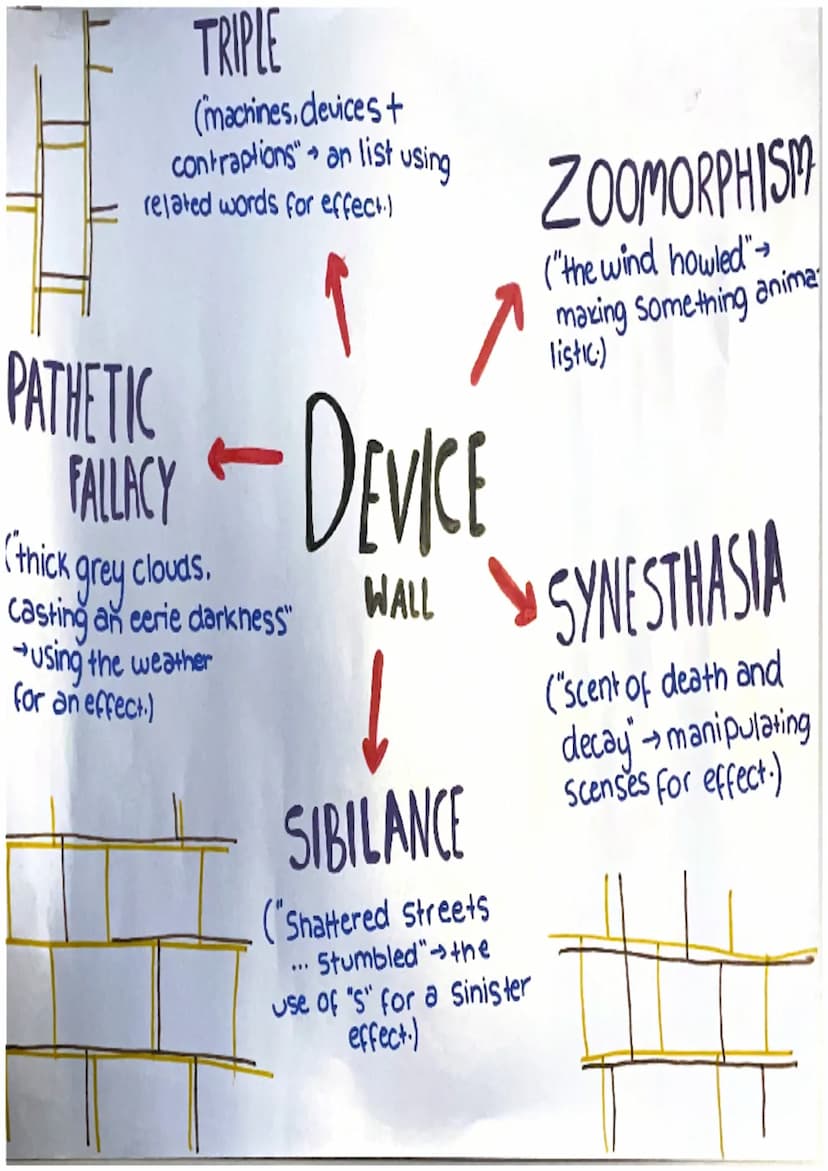 TRIPLE
("machines, devices +
contraptions" → an list using
related words for effect.)
ZOOMORPHISM
("the wind howled" →
making something anima-
listic.)
PATHETIC
FALLACY
("thick grey clouds.
casting an eerie darkness"
→ using the weather
for an effect.)
DEVICE
WALL
SYNESTHASIA
("scent of death and
decay" → manipulating
scenses for effect.)
SIBILANCE
("Shattered Streets
... Stumbled" → the
use of "s" for a sinister
effect.)